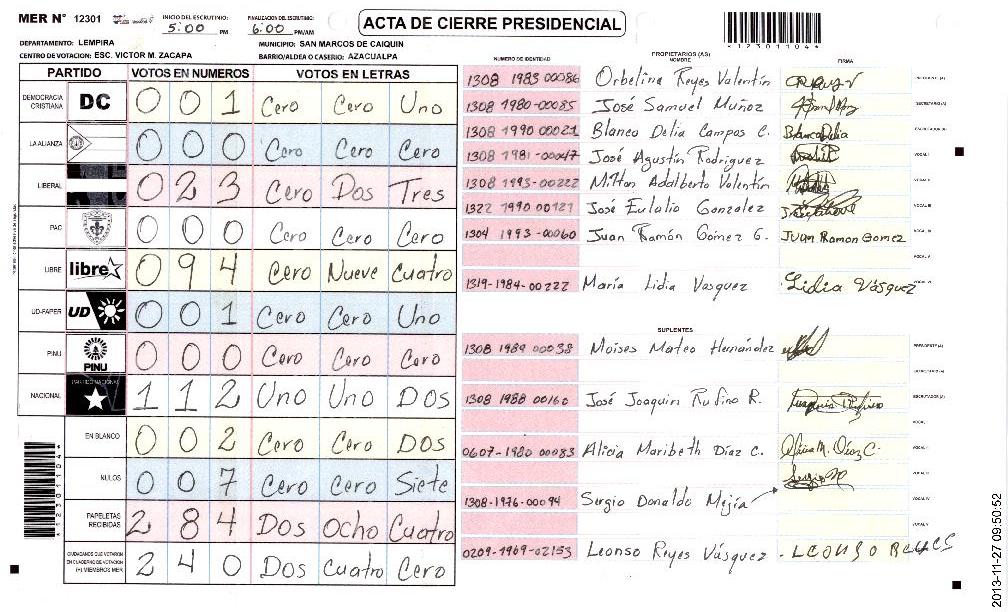 MER N° 12301
INICIO DEL ESCRUTINIO: 5:00 PM
FINALIZACION DEL ESCRUTINIO: 6:00 PM/AM
ACTA DE CIERRE PRESIDENCIAL
1230110 4
DEPARTAMENTO: LEMPIRA
MUNICIPIO: SAN MARCOS DE CAIQUIN
CENTRO DE VOTACION: ESC. VICTOR M. ZACAPA
BARRIO/ALDEA O CASERIO: AZACUALPA
PARTIDO VOTOS EN NUMEROS VOTOS EN LETRAS
DEMOCRACIA CRISTIANA DC 0 0 1 Cero Cero Uno
LA ALIANZA 0 0 0 Cero Cero Cero
LIBERAL 0 2 3 Cero Dos Tres
PAC 0 0 0 Cero Cero Cero
LIBRE libre 0 9 4 Cero Nueve Cuatro
UD-FAPER UD 0 0 1 Cero Cero Uno
PINU PINU 0 0 0 Cero Cero Cero
NACIONAL PARTIDO NACIONAL 1 1 2 Uno Uno Dos
EN BLANCO 0 0 2 Cero Cero Dos
NULOS 0 0 7 Cero Cero Siete
PAPELETAS RECIBIDAS 2 8 4 Dos Ocho Cuatro
CIUDADANOS QUE VOTARON EN CUADERNO DE VOTACION (+) MIEMBROS MER 2 4 0 Dos Cuatro Cero
PROPIETARIOS (AS)
NUMERO DE IDENTIDAD NOMBRE FIRMA
1308 1983 00086 Orbelina Reyes Valentín PRESIDENTE (A)
1308 1980-00085 José Samuel Muñoz SECRETARIO (A)
1308 1990 00021 Blanca Delia Campos C. Blanca Delia ESCRUTADOR (A)
1308 1981-00047 José Agustín Rodriguez VOCAL I
1308 1993-00222 Milton Adalberto Valentín VOCAL II
1322 1990 00121 José Eulalio Gonzalez VOCAL III
1304 1993-00060 Juan Ramón Gómez G. Juan Ramon Gomez VOCAL IV
VOCAL V
1319-1984-00222 María Lidia Vasquez Lidia Vásquez VOCAL VI
SUPLENTES
1308 1989 00038 Moises Mateo Hernández PRESIDENTE (A)
SECRETARIO (A)
1308 1988 00160 José Joaquin Rufino R. ESCRUTADOR (A)
VOCAL I
0607-1980 00083 Alicia Maribeth Díaz C. Alicia M. Díaz C. VOCAL II
1308-1976-00094 Sergio Donaldo Mejía Sergio M VOCAL IV
VOCAL V
0209-1969-02153 Leonso Reyes Vásquez Leonso Reyes VOCAL VI
2013-11-27 09:50:52